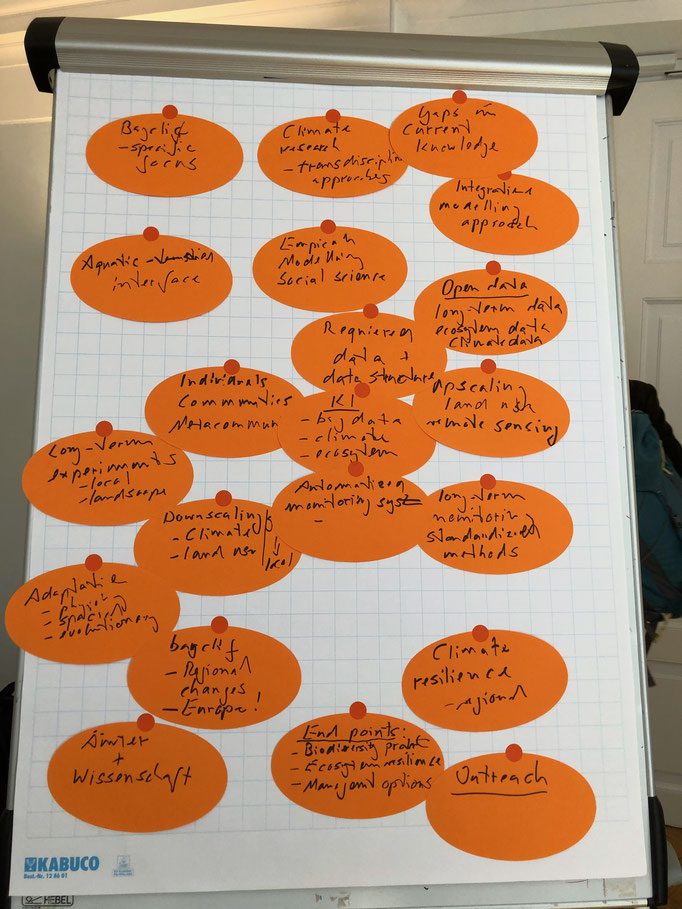 Bayclif
- specific
focus
Climate
research
- transdisciplin
approaches
Gaps in
current
knowledge
Integrative
modelling
approach
Aquatic - terrestrial
interface
Empirical
Modelling
Social science
Open data
long-term data
ecosystem data
Climate data
Required
data +
data structure
Individuals
Communities
Metacommun
KI
- big data
- climate
- ecosystem
Upscaling
land use
remote sensing
Long-term
experiments
- local
- landscape
Automatized
monitoring syste
-
Downscaling
- Climate
- land use
local
long-term
monitoring
standardized
methods
Adaptation
- species
- evolutionary
bayclif
- Regional
changes
- Europe!
Climate
resilience
- regional
Ämter
+
Wissenschaft
End points:
- Biodiversity
- Ecosystem resilience
- Management options
Outreach
KABUCO
Best.-Nr. 12 86 01
HEBEL